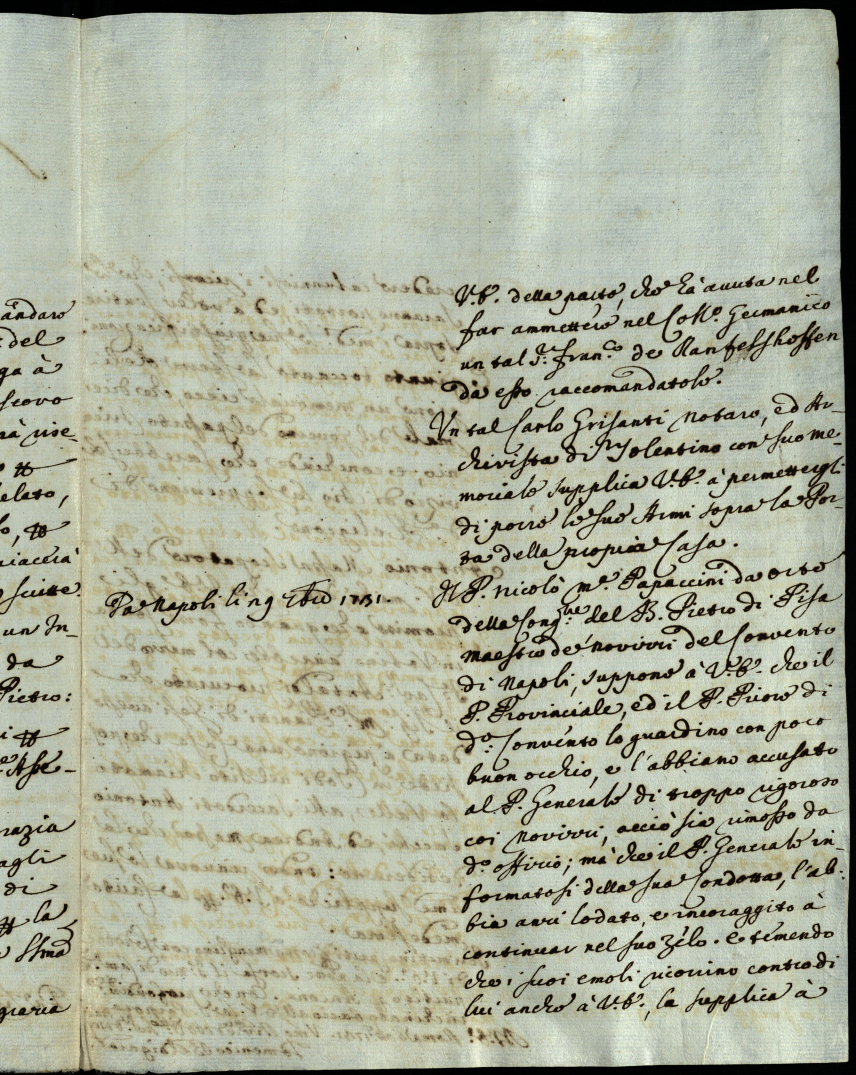 andaro
del
ga à
scovo
rà rise-
elato,
iacerà
scitte.
un In-
da
Pietro:
razia
agli
di
la
grazia
Da Napoli li 19 Xbre 1731.
V.E. della parte, che hà avuta nel
far ammettere nel Coll.o Germanico
un tal Sr. Fran.co de Ranfelshoffen
da esso raccomandatole.
Un tal Carlo Grisanti Notaro, ed Ar-
chivista di Tolentino con suo me-
moriale supplica V.E. à permettergli
di porre le sue Armi sopra la Por-
ta della propria Casa.
Il P. Nicolò Ma. Papaccini da Orte
della Cong.ne del B. Pietro di Pisa
Maestro de' Novizzi del Convento
di Napoli, suppone à V.E. che il
P. Provinciale, ed il P. Priore di
do. Convento lo guardino con poco
buon occhio, e l'abbiano accusato
al P. Generale di troppo rigoroso
coi Novizzi, acciò sia rimosso da
do. offizio; mà che il P. Generale in-
formatosi della sua Condotta, l'ab-
bia anzi lodato, e incoraggito à
continuar nel suo Zelo. e temendo
che i suoi emoli ricorrino contro di
lui anche à V.E., la supplica à